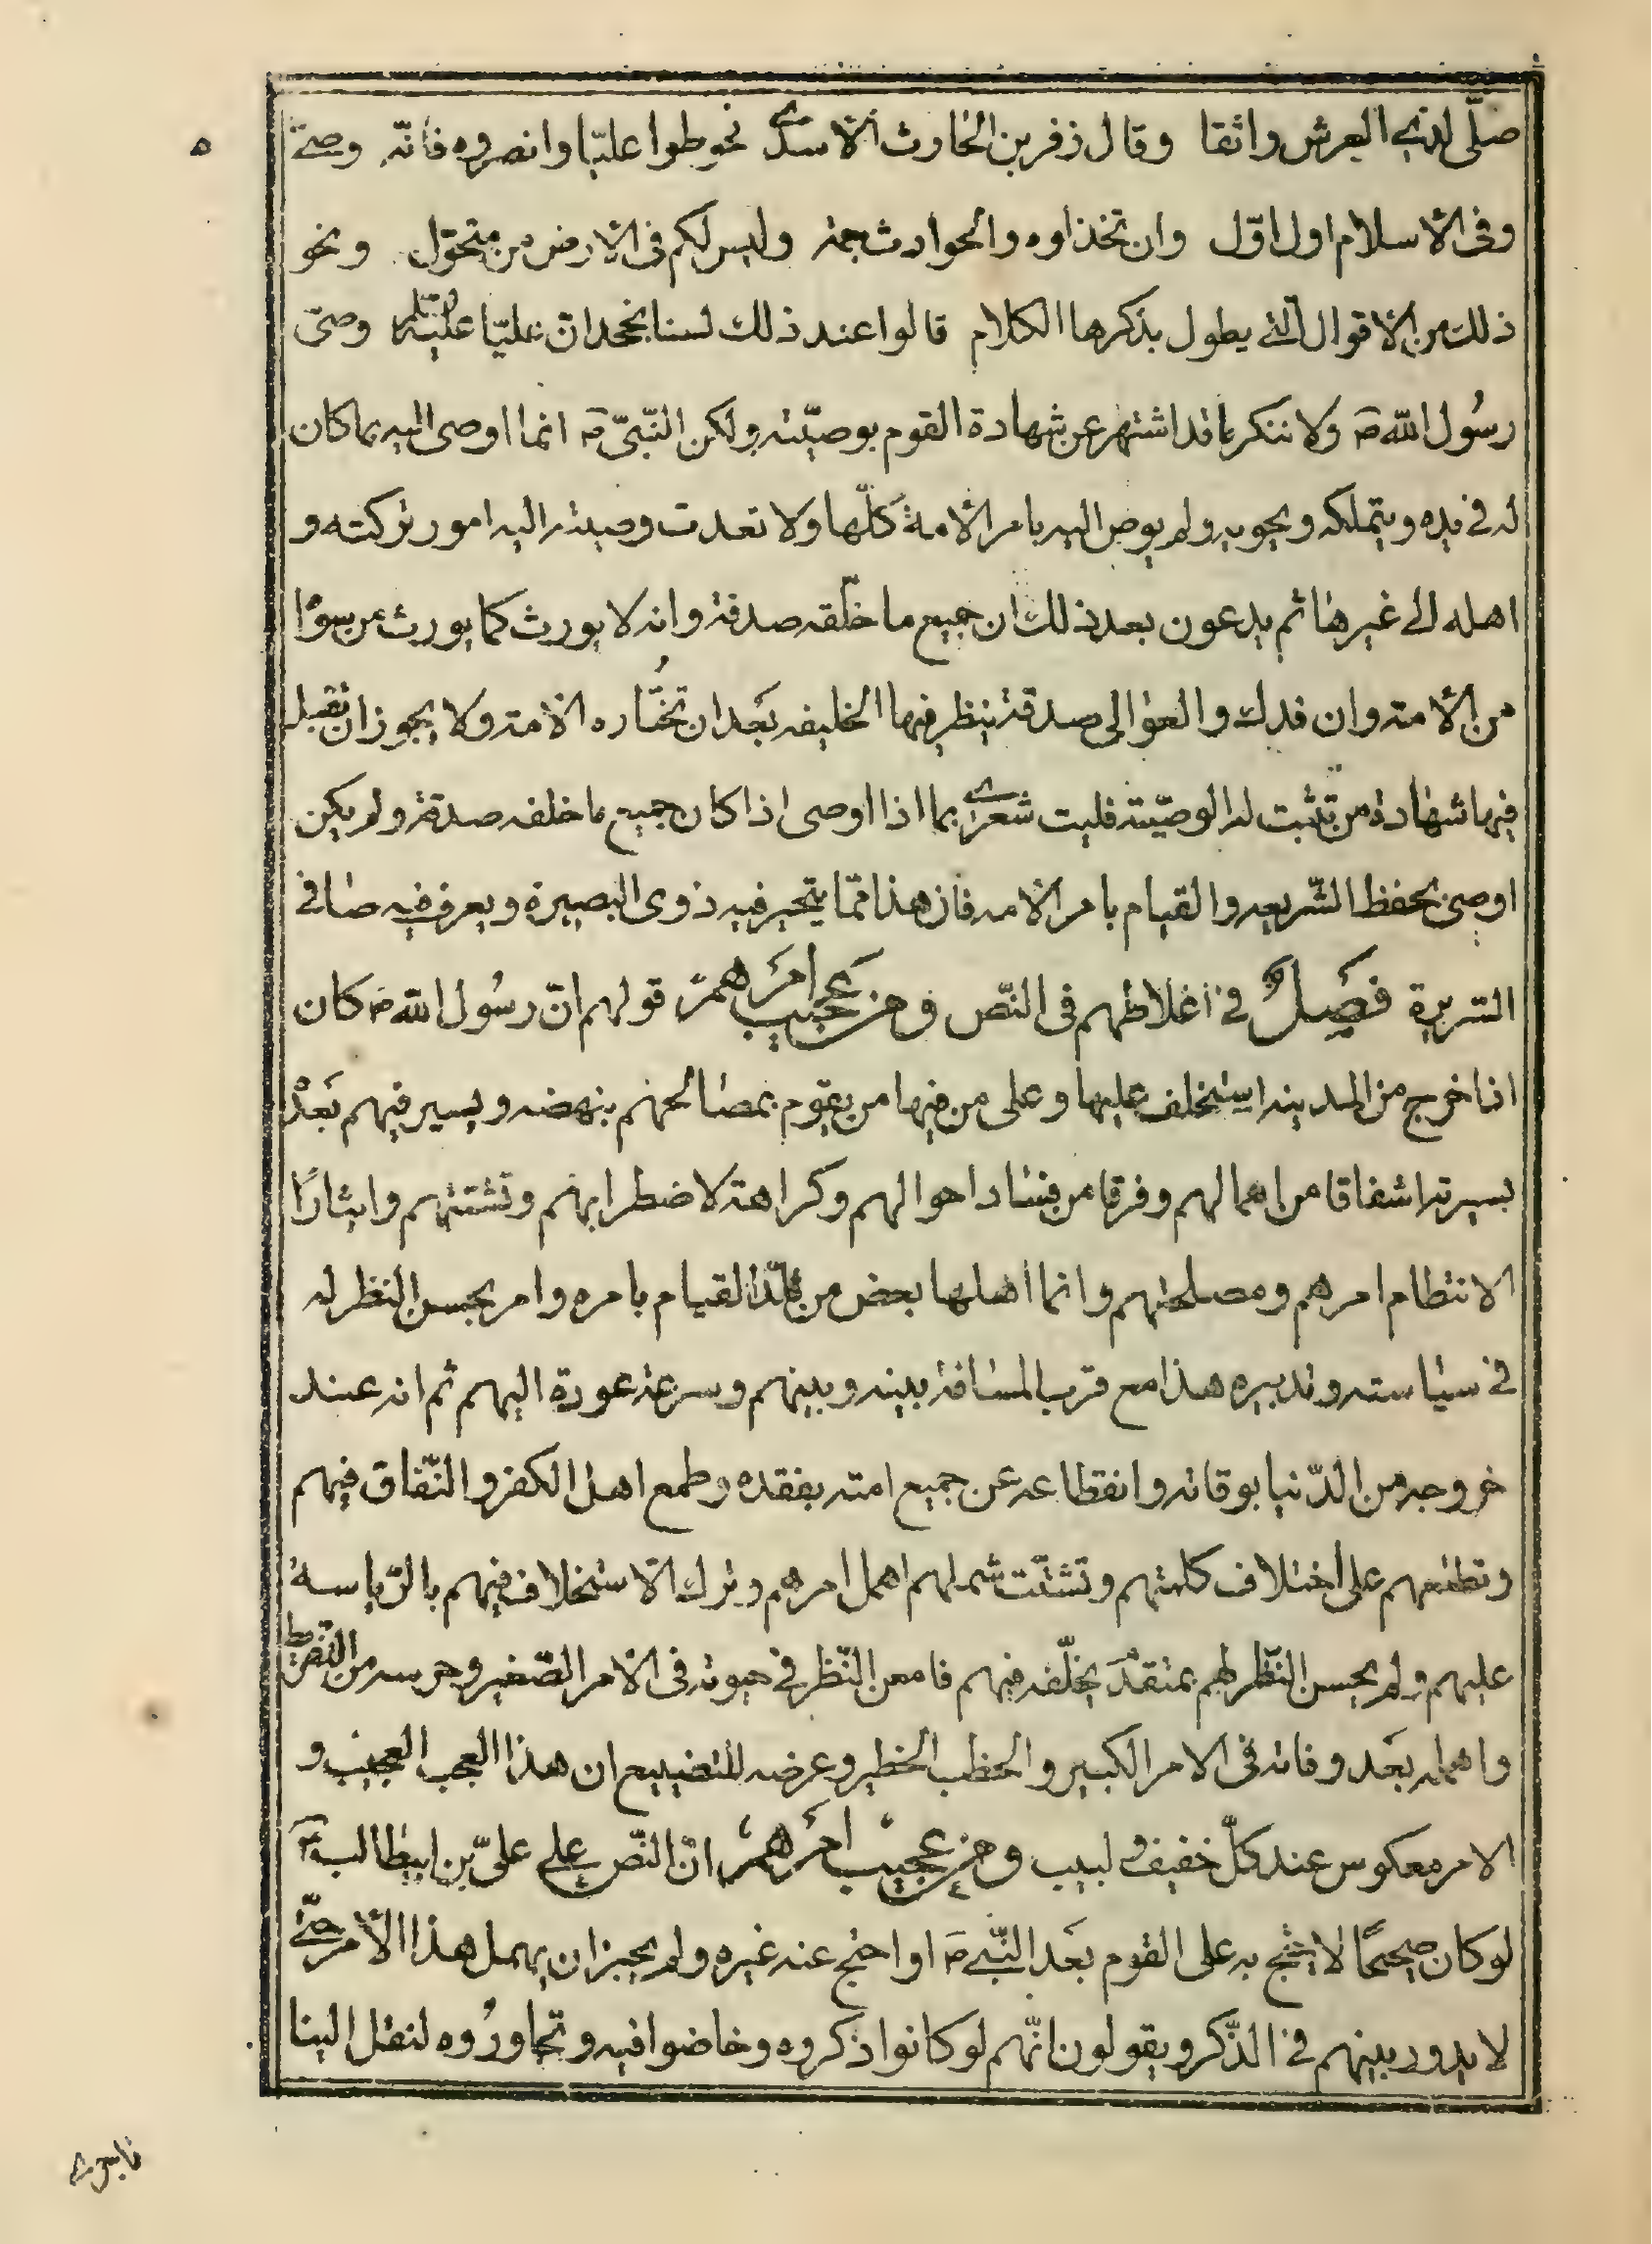 صلّى لذي العرش واتقا وقال زفر بن الحارث الاسدي فحوطوا عليّا وانصروه فانّه وصيّ
٥
وفى الاسلام اول اوّل وان تخذلوه والحوادث جمة وليس لكم فى الارض من متحوّل ونحو
ذلك من الاقوال الّتي يطول بذكرها الكلام قالوا عند ذلك لسنا نجحد انّ عليّا عليه السّلم وصىّ
رسُول اللّه ص ولا ننكر ما قد اشتهر عن شهادة القوم بوصيّته ولكن النّبىّ ص انما اوصى اليه بما كان
له فى يده ويتملكه ويحويه ولم يوص اليه بامر الامة كلّها ولا تعدت وصيته اليه امور تركته و
اهله الى غيرها ثم يدعون بعد ذلك ان جميع ما خلّفه صدقة وانه لا يورث كما يورث من سواه
من الامته وان فدك والعوالى صدقة ينظر فيها الخليفه بعد ان تختاره الامته ولا يجوز ان تقبل
فيها شهادة من تثبت له الوصيّته فليت شعرى بما اذا اوصى اذا كان جميع ما خلفه صدقة ولم يكن
اوصى بحفظ الشّريعه والقيام بامر الامه فان هذا ممّا يتحير فيه ذوى البصيرة ويعرف فيه صافى
السّريرة فصل فى اغلاطهم فى النّص ومن عجيب امرهم قولهم انّ رسُول اللّه ص كان
اذا خرج من المدينه استخلف عليها وعلى من فيها من يقوم بمصالحهم بنهضه ويسير فيهم بَعدْ
بسيرته اشفاقا من اهمالهم وفرقا من فساد احوالهم وكراهة لاضطرابهم وتشتتهم وايثارًا
الانتظام امرهم ومصلحتهم وانما اهلها بعض من قلّد القيام بامره وامر بحسن النظر له
فى سياسته وتدبيره هذا مع قرب المسافة بينه وبينهم وسرعة عودة اليهم ثم انه عند
خروجه من الدّنيا بوفاته وانقطاعه عن جميع امته بفقده وطمع اهل الكفر والنّفاق فيهم
وتطلعهم على اختلاف كلمتهم وتشتّت شملهم اهمل امرهم وترك الاستخلاف فيهم بالرّياسة
عليهم ولم يحسن النّظر لهم بمتقدّ يخلّفه فيهم فامعن النّظر فى حيوته فى الامر الصّغير وحرسه من التفريط
واهمله بعد وفاته فى الامر الكبير والخطب الخطير وعرضه للتضييع ان هذا العجب العجيب و
الامر معكوس عند كلّ خفيف ولبيب ومن عجيب امرهم انّ النّص على علىّ بن ابيطالب ع
لو كان صحيحًا لاحتج به على القوم بعد النّبى ص او احتج عنه غيره ولم يجيز ان يهمل هذا الامر حتّى
لا يدور بينهم فى الذّكر ويقولون انّهم لو كانوا ذكروه وخاضوا فيه وتحاوروه لنقل الينا